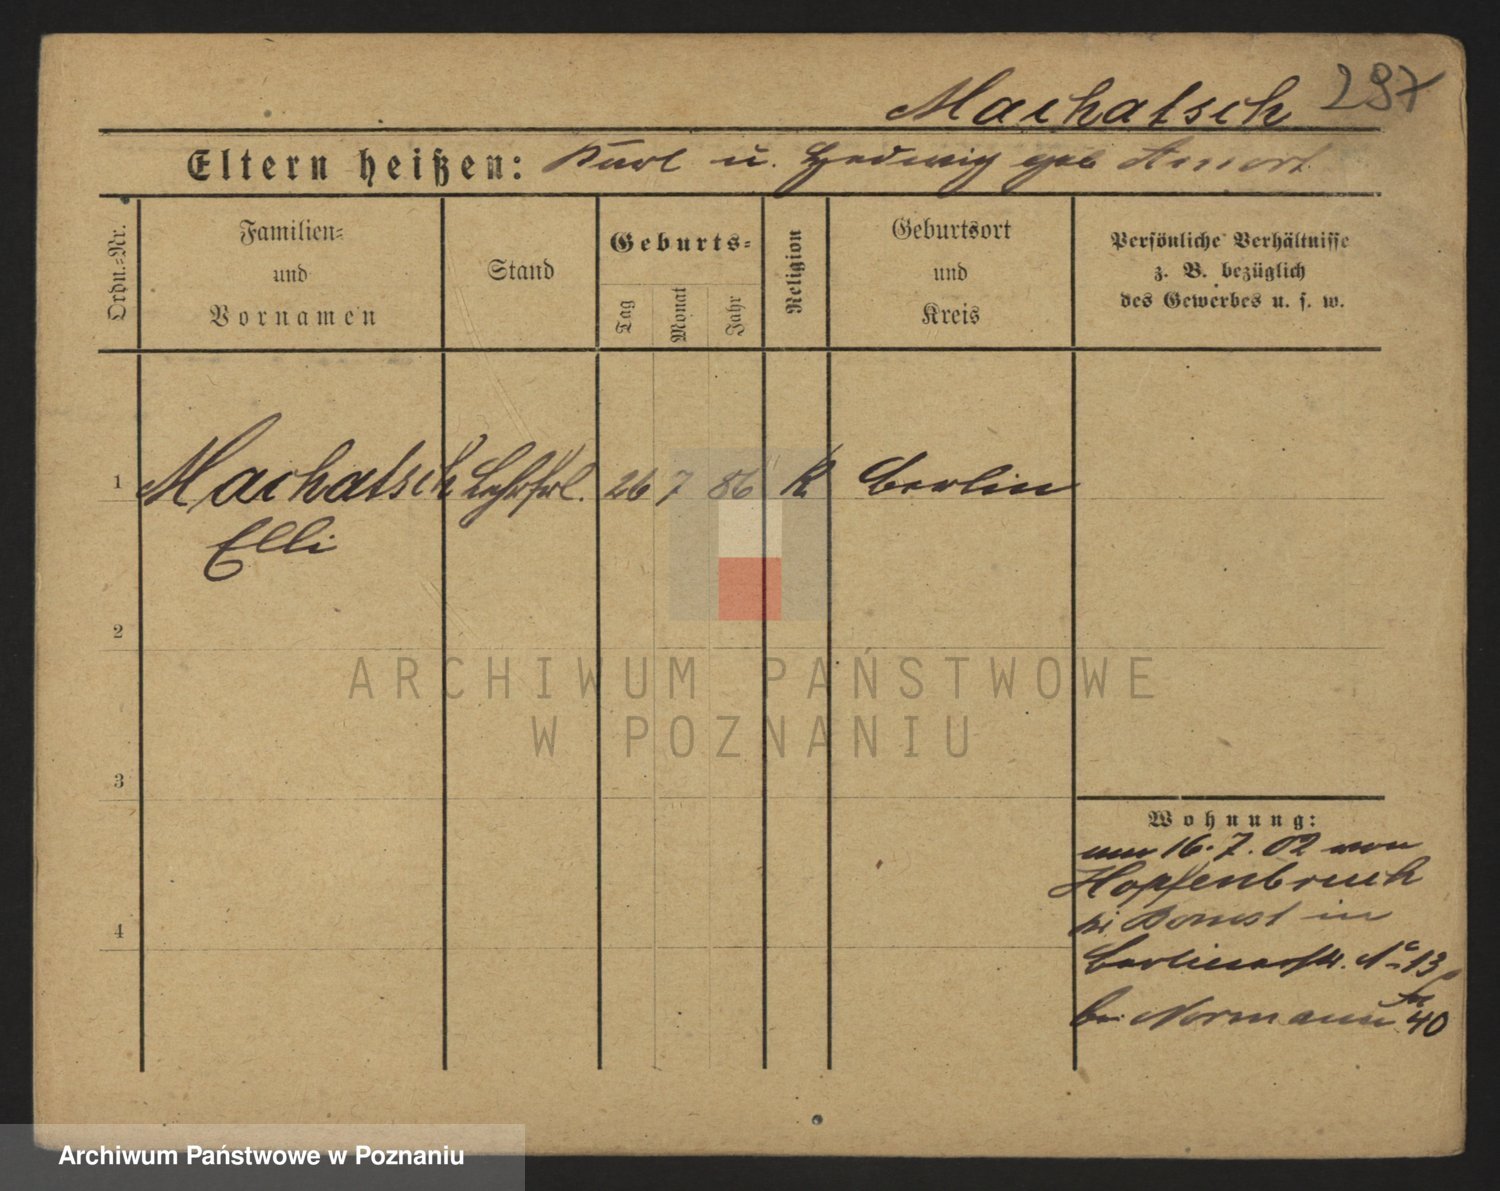 Machatsch 297
Eltern heißen: Karl u. Hedwig geb
Ordn.-Nr.
Familien-
und
Vornamen
Stand
Geburts-
Tag
Monat
Jahr
Religion
Geburtsort
und
Kreis
Persönliche Verhältnisse
z. B. bezüglich
des Gewerbes u. s. w.
1 Machatsch Lehrfrl. 26 7 86 K Berlin
Elli
2
3
4
Wohnung:
16. 7. 02 von
Hopfenbruch
Bomst in
Berlinerstr. No 13
bei Normann 40
ARCHIWUM PAŃSTWOWE
W POZNANIU
Archiwum Państwowe w Poznaniu